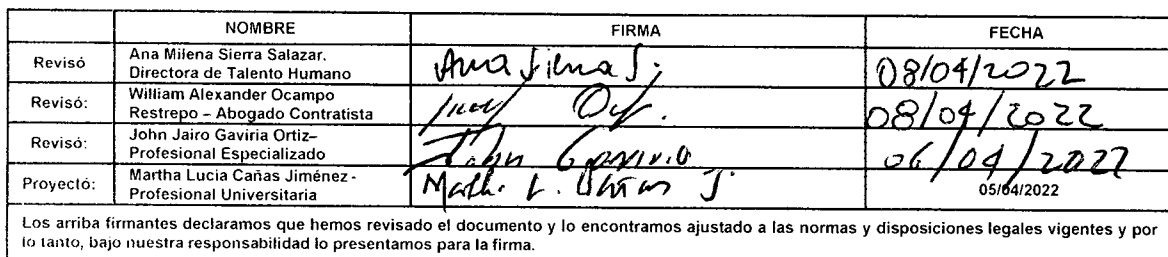 NOMBRE FIRMA FECHA
Revisó Ana Milena Sierra Salazar. Directora de Talento Humano 08/04/2022
Revisó: William Alexander Ocampo Restrepo – Abogado Contratista 08/04/2022
Revisó: John Jairo Gaviria Ortiz– Profesional Especializado John Gaviria 06/04/2022
Proyectó: Martha Lucia Cañas Jiménez - Profesional Universitaria Martha L. Cañas J. 05/04/2022
Los arriba firmantes declaramos que hemos revisado el documento y lo encontramos ajustado a las normas y disposiciones legales vigentes y por
lo tanto, bajo nuestra responsabilidad lo presentamos para la firma.